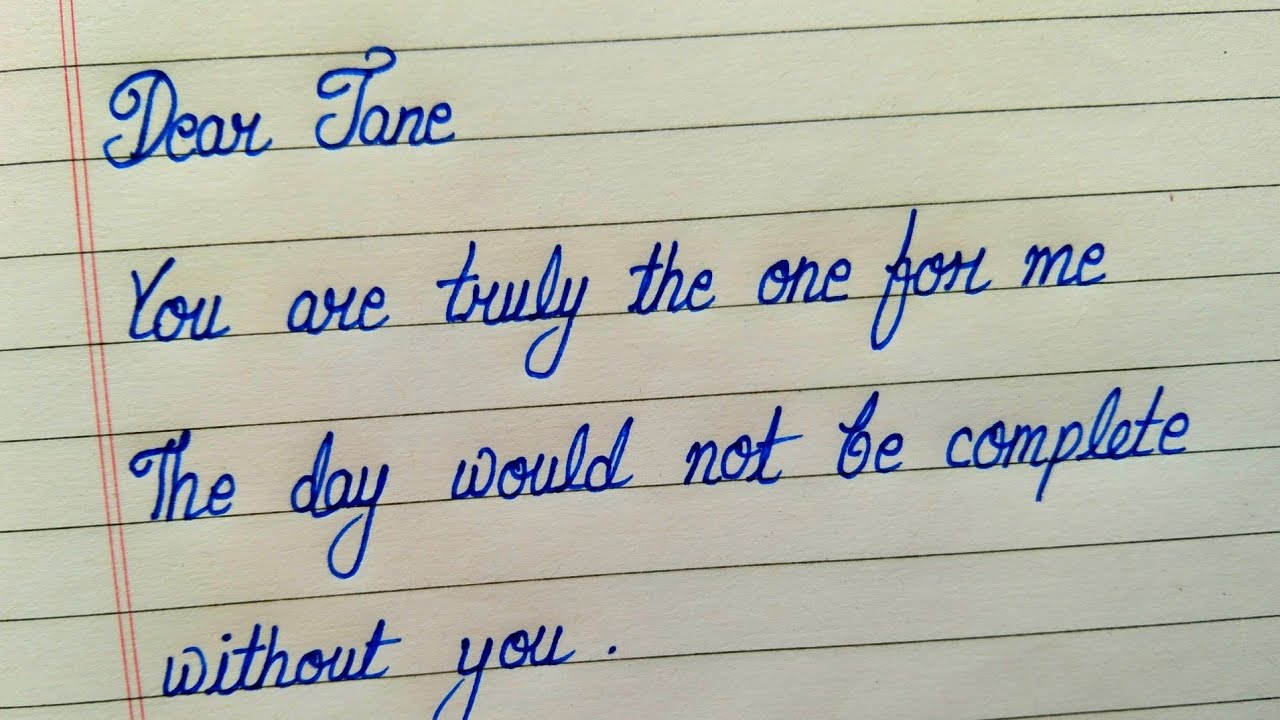 Dear Jane
You are truly the one for me
The day would not be complete
without you.